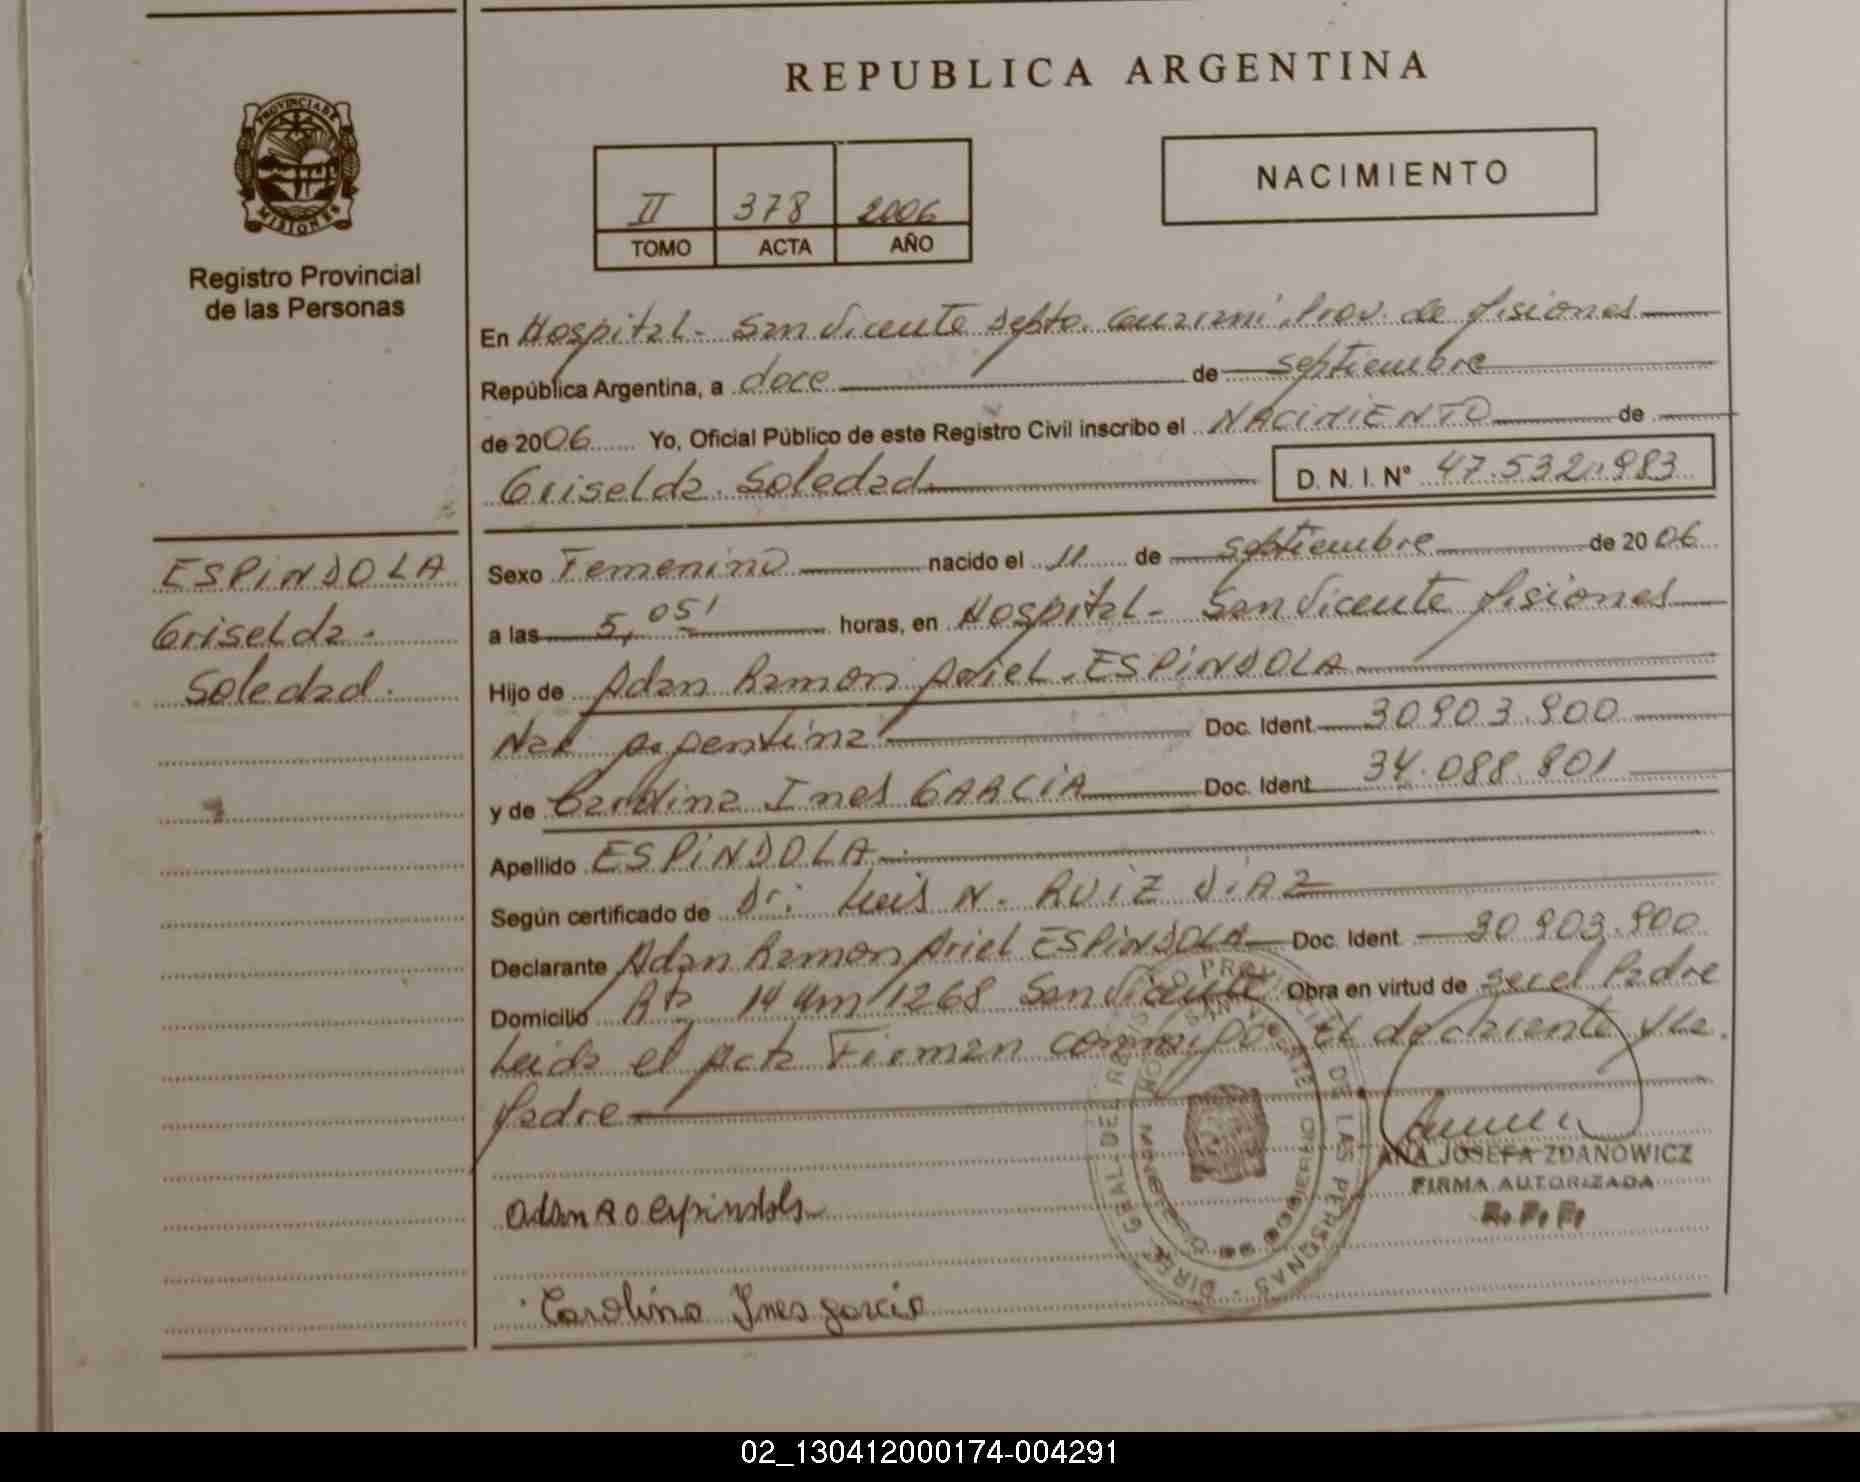 REPUBLICA ARGENTINA
PROVINCIA DE
MISIONES
Registro Provincial
de las Personas
II 378 2006
TOMO ACTA AÑO
NACIMIENTO
En Hospital - San Vicente Depto. Guarani, Prov. de Misiones
República Argentina, a doce de septiembre
de 2006 Yo, Oficial Público de este Registro Civil inscribo el NACIMIENTO de
Griselda Soledad D. N. I. N° 47.532.983
ESPINDOLA
Griselda
Soledad
Sexo Femenino nacido el 11 de septiembre de 2006
a las 5,05' horas, en Hospital - San Vicente Misiones
Hijo de Adan Ramon Ariel ESPINDOLA
Nac Argentina Doc. Ident. 30903.900
y de Carolina Ines GARCIA Doc. Ident. 34.088.801
Apellido ESPINDOLA
Según certificado de Dr: Luis N. RUIZ DIAZ
Declarante Adan Ramon Ariel ESPINDOLA Doc. Ident. 30903.900
Domicilio Rta 14 Km 1268 San Vicente Obra en virtud de ser el Padre
Leida el Acta Firman conmigo El declarante y la
Madre
DIREC. GRAL. DEL REGISTRO PROVINCIAL DE LAS PERSONAS
ANA JOSEFA ZDANOWICZ
FIRMA AUTORIZADA
Adan R o espindola
Carolina Ines garcia
02_130412000174-004291